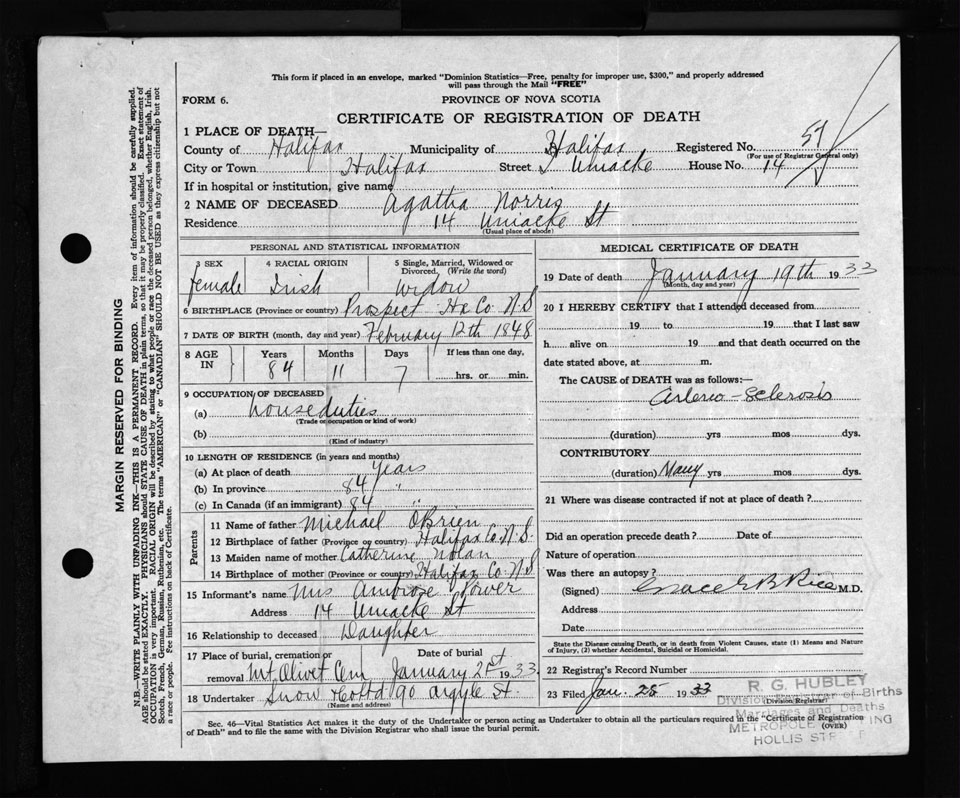 This form if placed in an envelope, marked "Dominion Statistics—Free, penalty for improper use, $300," and properly addressed
will pass through the Mail "FREE"
FORM 6.
PROVINCE OF NOVA SCOTIA
CERTIFICATE OF REGISTRATION OF DEATH
1 PLACE OF DEATH—
County of Halifax Municipality of Halifax Registered No. 57
(For use of Registrar General only)
City or Town Halifax Street Uniacke House No. 14
If in hospital or institution, give name
2 NAME OF DECEASED Agatha Norris
Residence 14 Uniacke St
(Usual place of abode)
PERSONAL AND STATISTICAL INFORMATION
3 SEX 4 RACIAL ORIGIN 5 Single, Married, Widowed or Divorced, (Write the word)
female Irish Widow
6 BIRTHPLACE (Province or country) Prospect Hx Co N.S
7 DATE OF BIRTH (month, day and year) February 12th 1848
8 AGE IN Years Months Days If less than one day,
84 11 7 hrs. or min.
9 OCCUPATION OF DECEASED
(a) house duties
(Trade or occupation or kind of work)
(b)
(Kind of industry)
10 LENGTH OF RESIDENCE (in years and months)
(a) At place of death years
(b) In province 84 "
(c) In Canada (if an immigrant) 84 "
Parents
11 Name of father Michael O'Brien
12 Birthplace of father (Province or country) Halifax Co. N.S.
13 Maiden name of mother Catherine Nolan
14 Birthplace of mother (Province or country) Halifax Co N.S
15 Informant's name Mrs Ambrose Power
Address 14 Uniacke St
16 Relationship to deceased Daughter
17 Place of burial, cremation or removal Mt. Olivet Cem Date of burial January 21st 1933
18 Undertaker Snow & Co Ltd 90 Argyle St.
(Name and address)
MEDICAL CERTIFICATE OF DEATH
19 Date of death January 19th 1933
(Month, day and year)
20 I HEREBY CERTIFY that I attended deceased from
19 to 19 that I last saw
h alive on 19 and that death occurred on the
date stated above, at m.
The CAUSE OF DEATH was as follows:—
Arterio-Sclerosis
(duration) yrs mos dys.
CONTRIBUTORY
(duration) Many yrs mos dys.
21 Where was disease contracted if not at place of death?
Did an operation precede death? Date of
Nature of operation
Was there an autopsy?
(Signed) Grace E B Rice M.D.
Address
Date
State the Disease causing Death, or in death from Violent Causes, state (1) Means and Nature
of Injury, (2) whether Accidental, Suicidal or Homicidal.
22 Registrar's Record Number
23 Filed Jan. 25 1933
(Division Registrar)
R. G. HUBLEY
Division Registrar of Births
Marriages and Deaths
METROPOLE ING
HOLLIS STR
Sec. 46—Vital Statistics Act makes it the duty of the Undertaker or person acting as Undertaker to obtain all the particulars required in the "Certificate of Registration
of Death" and to file the same with the Division Registrar who shall issue the burial permit.
(OVER)
MARGIN RESERVED FOR BINDING
N.B.—WRITE PLAINLY WITH UNFADING INK—THIS IS A PERMANENT RECORD. Every item of information should be carefully supplied.
AGE should be stated EXACTLY. PHYSICIANS should STATE CAUSE OF DEATH in plain terms, so that it may be properly classified. Exact statement of
OCCUPATION is very important. RACIAL ORIGIN will be described by stating to what people or race the deceased person belonged, whether English, Irish,
Scotch, French, German, Russian, Ruthenian, etc. The terms "AMERICAN" or "CANADIAN" SHOULD NOT BE USED as they express citizenship but not
a race or people. Fee instructions on back of Certificate.